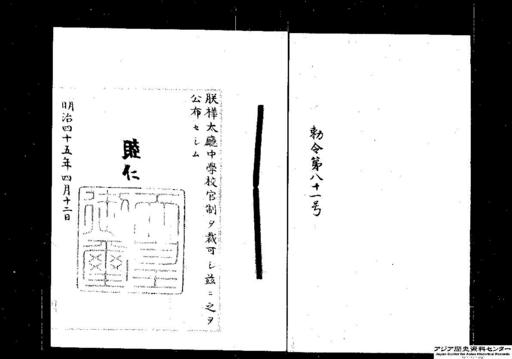 勅令第八十一号
朕樺太廳中學校官制ヲ裁可シ茲ニ之ヲ
公布セシム
睦仁
天皇御璽
明治四十五年四月十二日
アジア歴史資料センター
Japan Center for Asian Historical Records